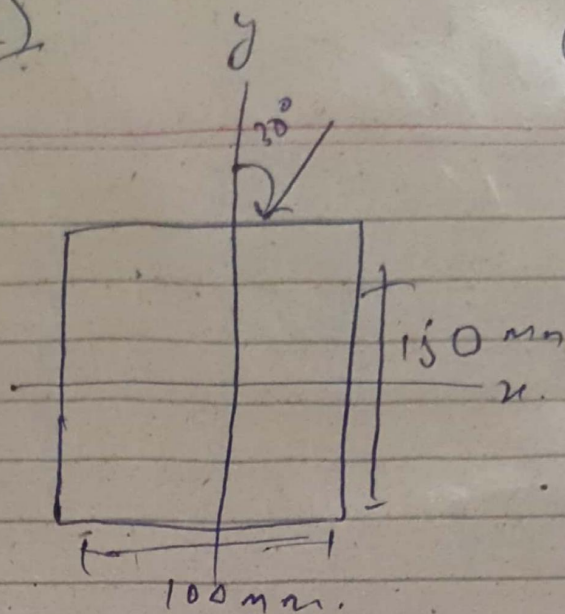 y
30°
150 mm
x.
100 mm.